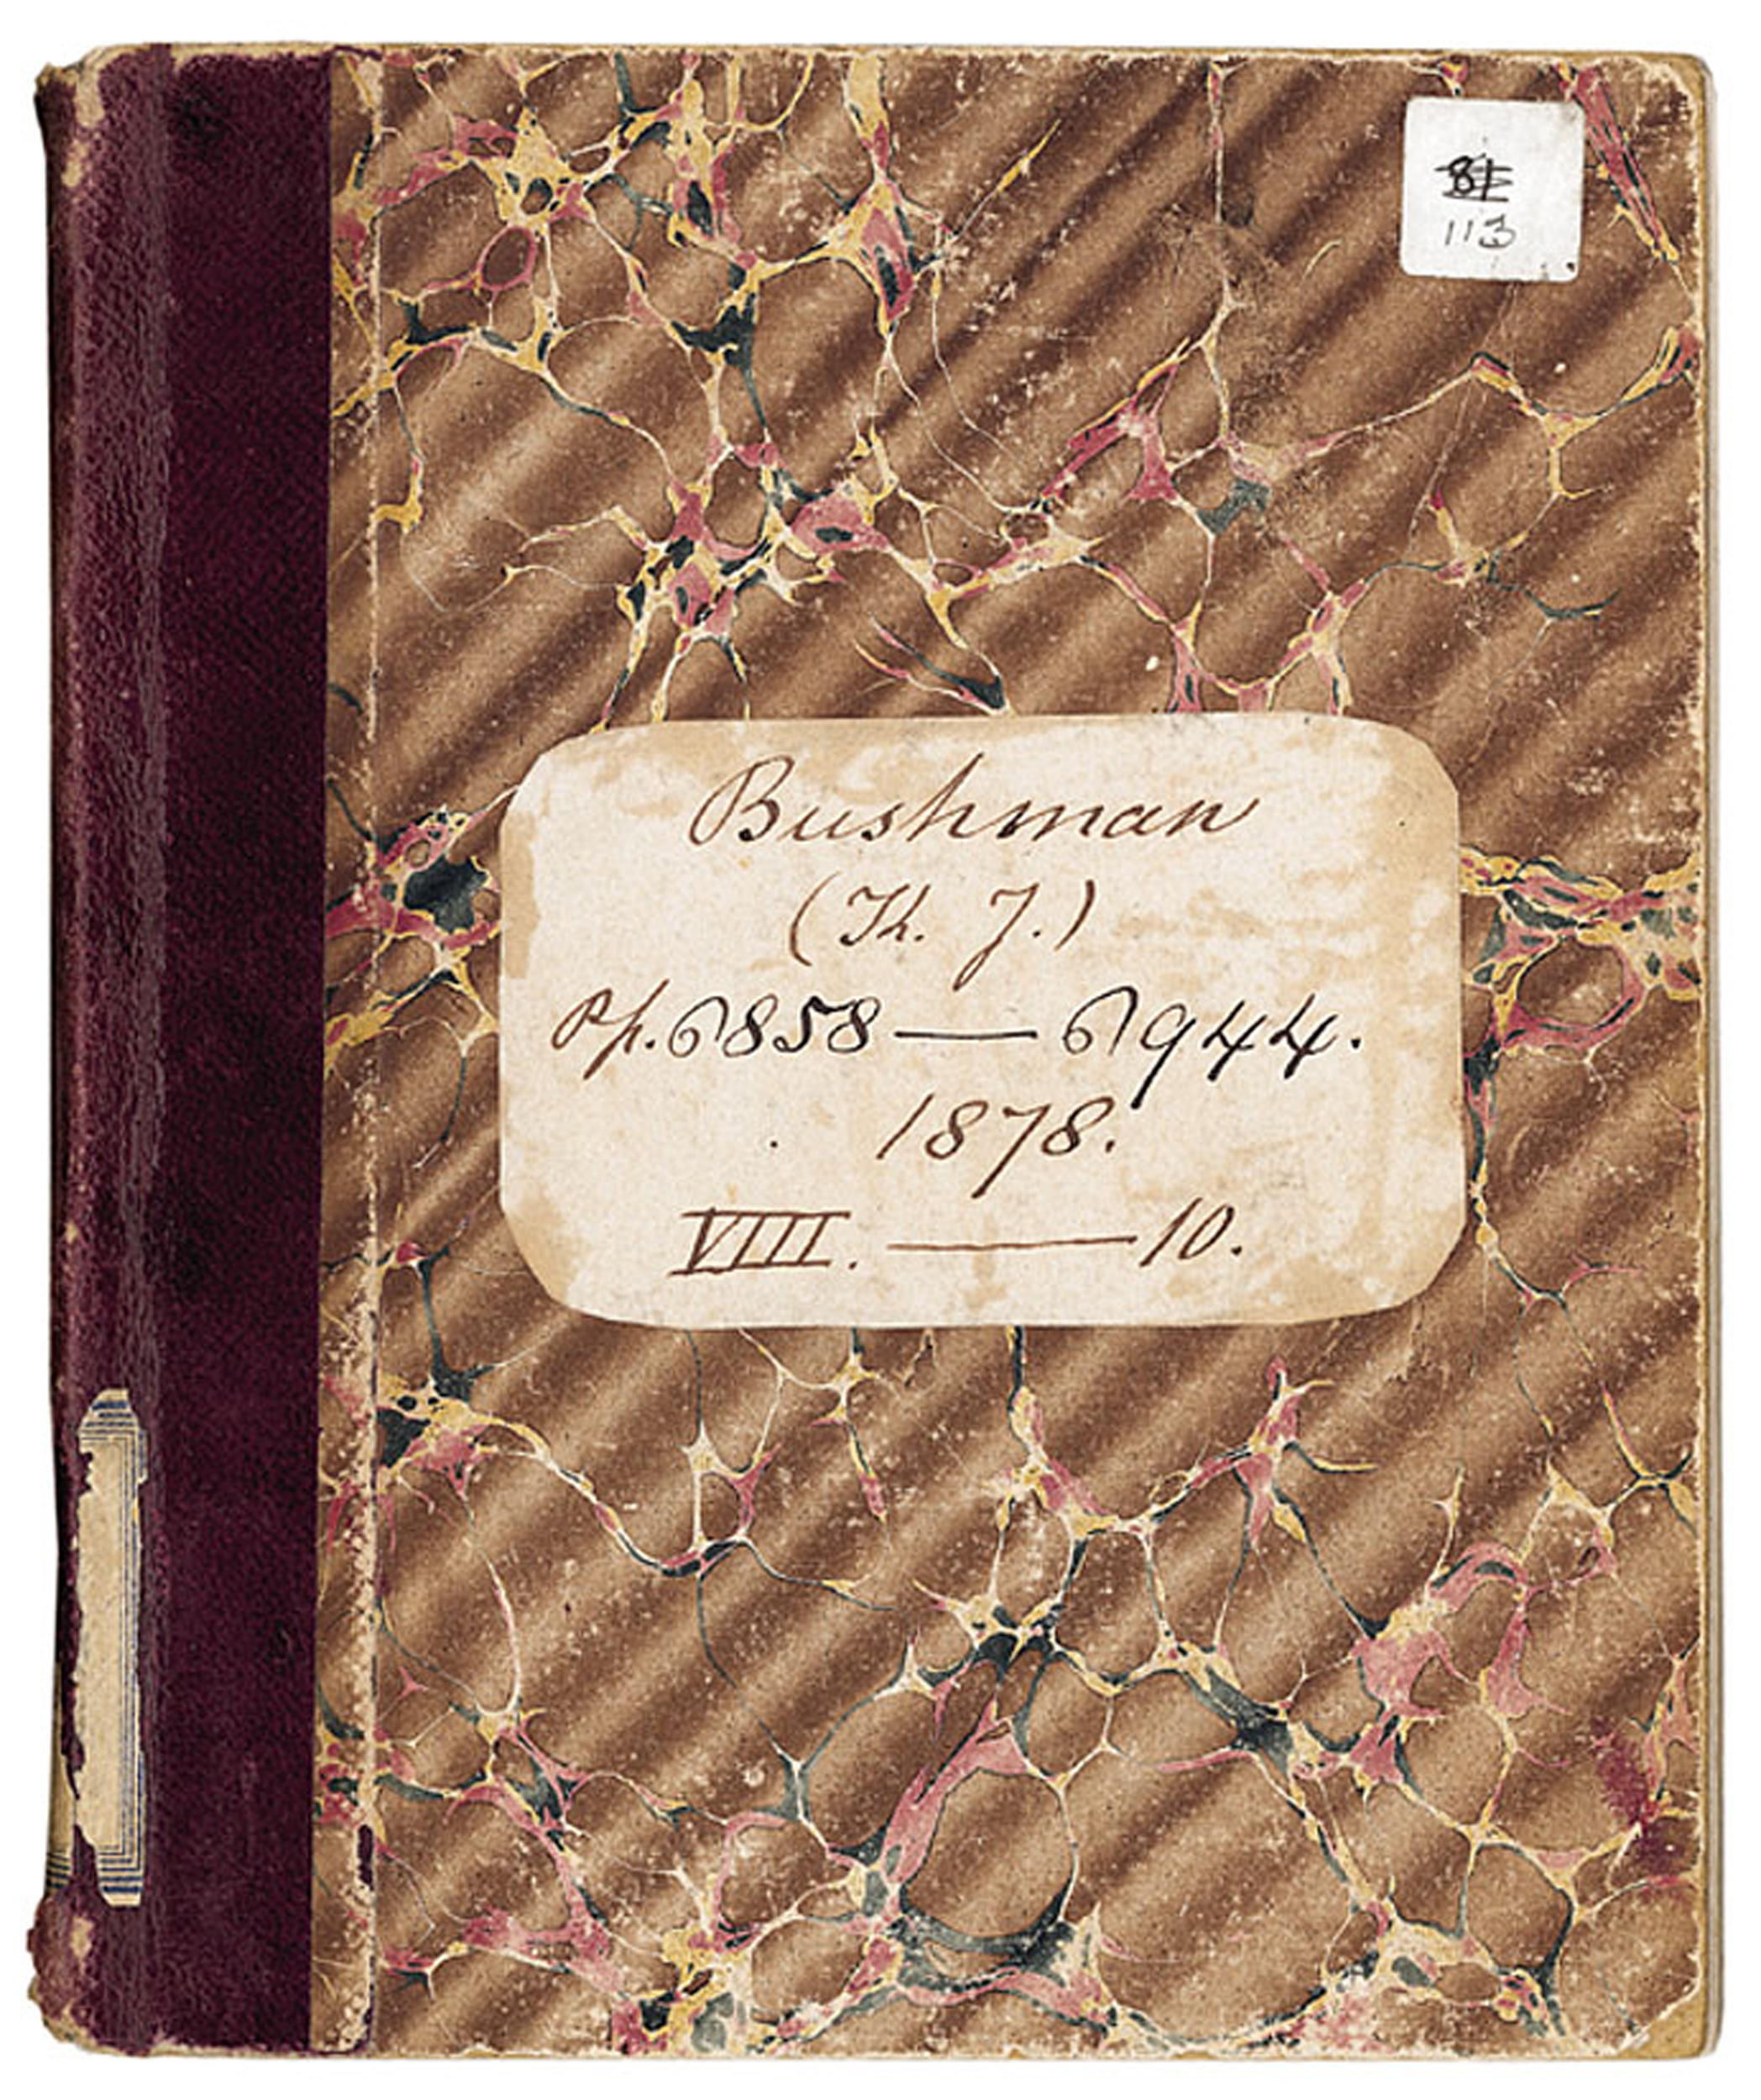 113
Bushman
(K. J.)
Pp. 6858 — 6944.
1878.
VIII. — 10.